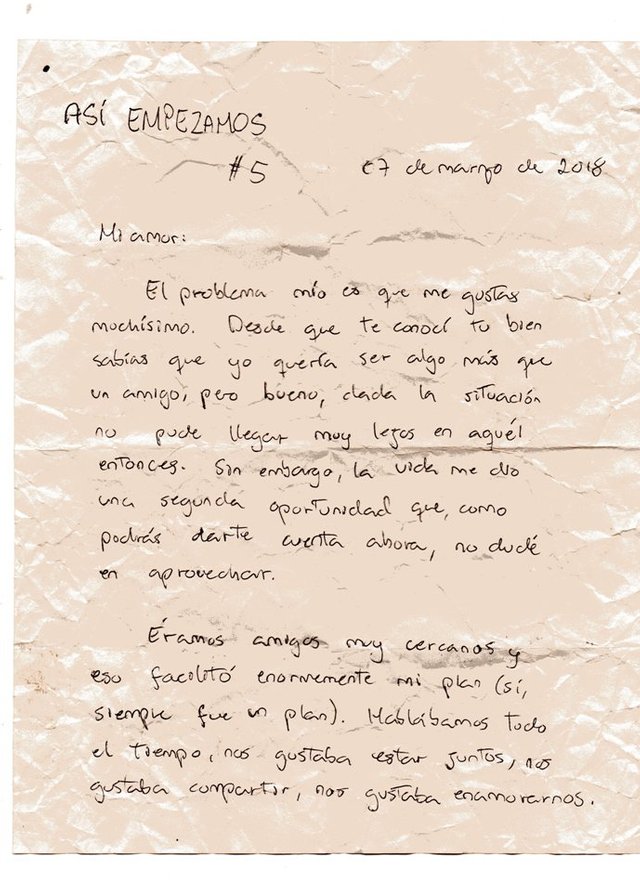 ASÍ EMPEZAMOS
#5 17 de marzo de 2018
Mi amor:
El problema mío es que me gustas
muchísimo. Desde que te conocí tu bien
sabías que yo quería ser algo más que
un amigo, pero bueno, dada la situación
no pude llegar muy lejos en aquél
entonces. Sin embargo, la vida me dio
una segunda oportunidad que, como
podrás darte cuenta ahora, no dudé
en aprovechar.
Éramos amigos muy cercanos y
eso facilitó enormemente mi plan (sí,
siempre fue un plan). Hablábamos todo
el tiempo, nos gustaba estar juntos, nos
gustaba compartir, nos gustaba enamorarnos.